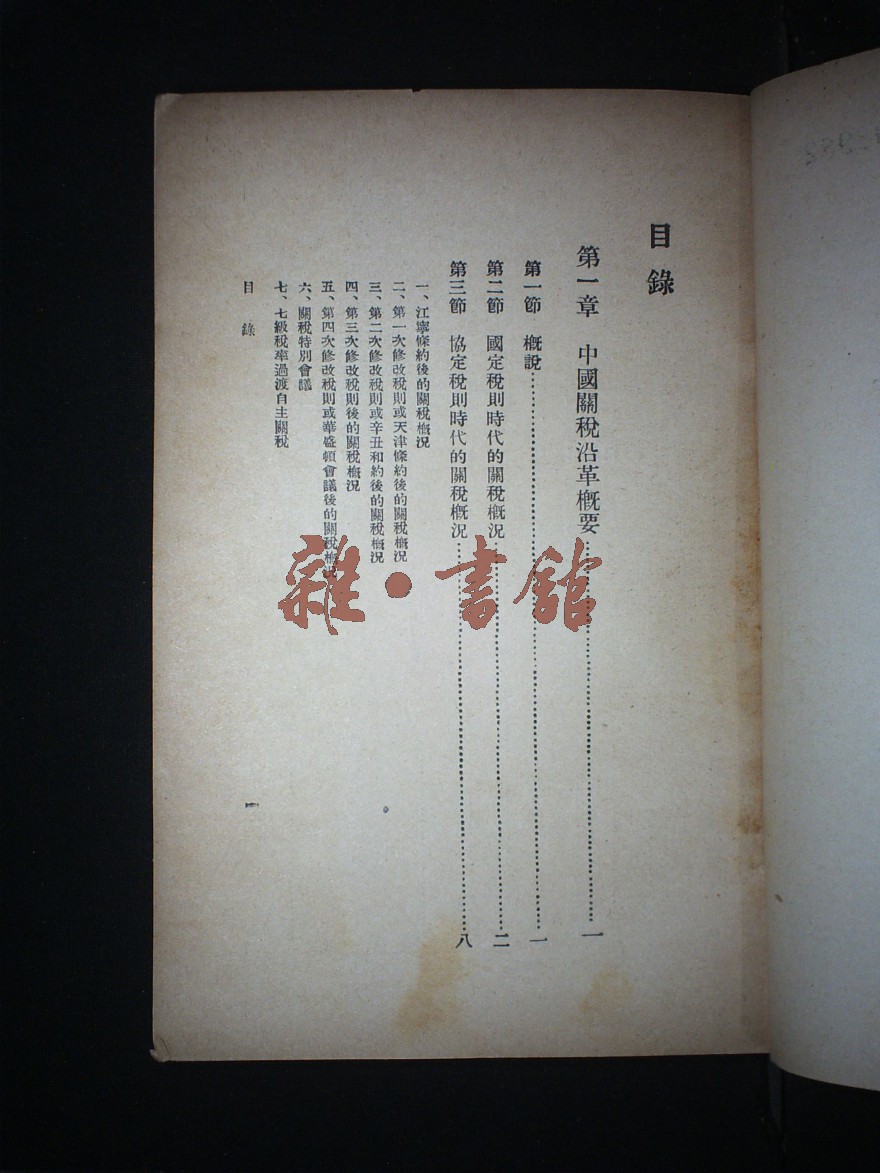 目錄
第一章 中國關稅沿革概要……一
第一節 概說……一
第二節 國定稅則時代的關稅概況……二
第三節 協定稅則時代的關稅概況……八
一、江寧條約後的關稅概況
二、第一次修改稅則或天津條約後的關稅概況
三、第二次修改稅則或辛丑和約後的關稅概況
四、第三次修改稅則後的關稅概況
五、第四次修改稅則或華盛頓會議後的關稅概況
六、關稅特別會議
七、七級稅率過渡自主關稅
目錄 一
雜·書館